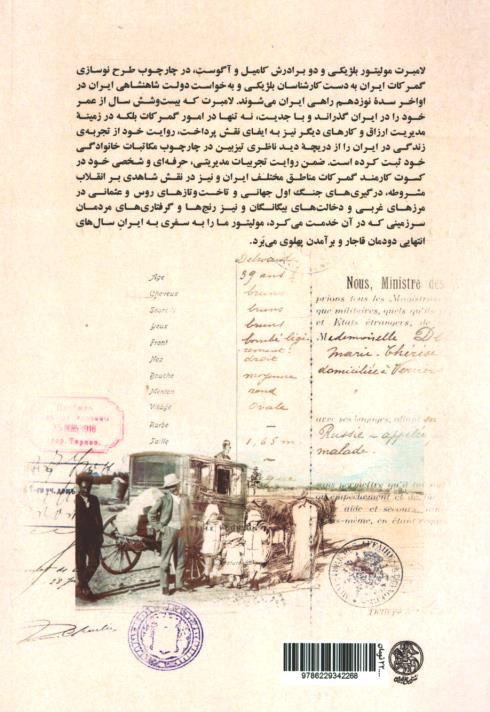 لامبرت مولیتور بلژیکی و دو برادرش کامیل و آگوست، در چارچوب طرح نوسازی
گمرکات ایران به دست کارشناسان بلژیکی و به‌خواست دولت شاهنشاهی ایران در
اواخر سدهٔ نوزدهم راهی ایران می‌شوند. لامبرت که بیست‌وشش سال از عمر
خود را در ایران گذراند و با جدیت، نه تنها در امور گمرکات بلکه در زمینهٔ
مدیریت ارزاق و کارهای دیگر نیز به ایفای نقش پرداخت، روایت خود از تجربه‌ی
زندگی در ایران را از دریچهٔ دید ناظری تیزبین در چارچوب مکاتبات خانوادگی
خود ثبت کرده است. ضمن روایت تجربیات مدیریتی، حرفه‌ای و شخصی خود در
کسوت کارمند گمرکات مناطق مختلف ایران و نیز در نقش شاهدی بر انقلاب
مشروطه، درگیری‌های جنگ اول جهانی و تاخت‌وتازهای روس و عثمانی در
مرزهای غربی و دخالت‌های بیگانگان و نیز رنج‌ها و گرفتاری‌های مردمان
سرزمینی که در آن خدمت می‌کرد، مولیتور ما را به سفری به ایرانِ سال‌های
انتهایی دودمان قاجار و برآمدن پهلوی می‌بَرد.
Age 39 ans
Cheveux bruns
Sourcils bruns
Yeux bruns
Front bombé légè-
rement
Nez droit
Bouche moyenne
Menton rond
Visage Ovale
Barbe —
Taille 1,65 m.
Nous, Ministre des
prions tous les Magistrats
que militaires, quels qu'ils
et Etats étrangers, de
Mademoiselle
Marie-Thérèse
domiciliée à
avec ses bagages, allant en
Russie – appelée
malade.
1916
9786229342268